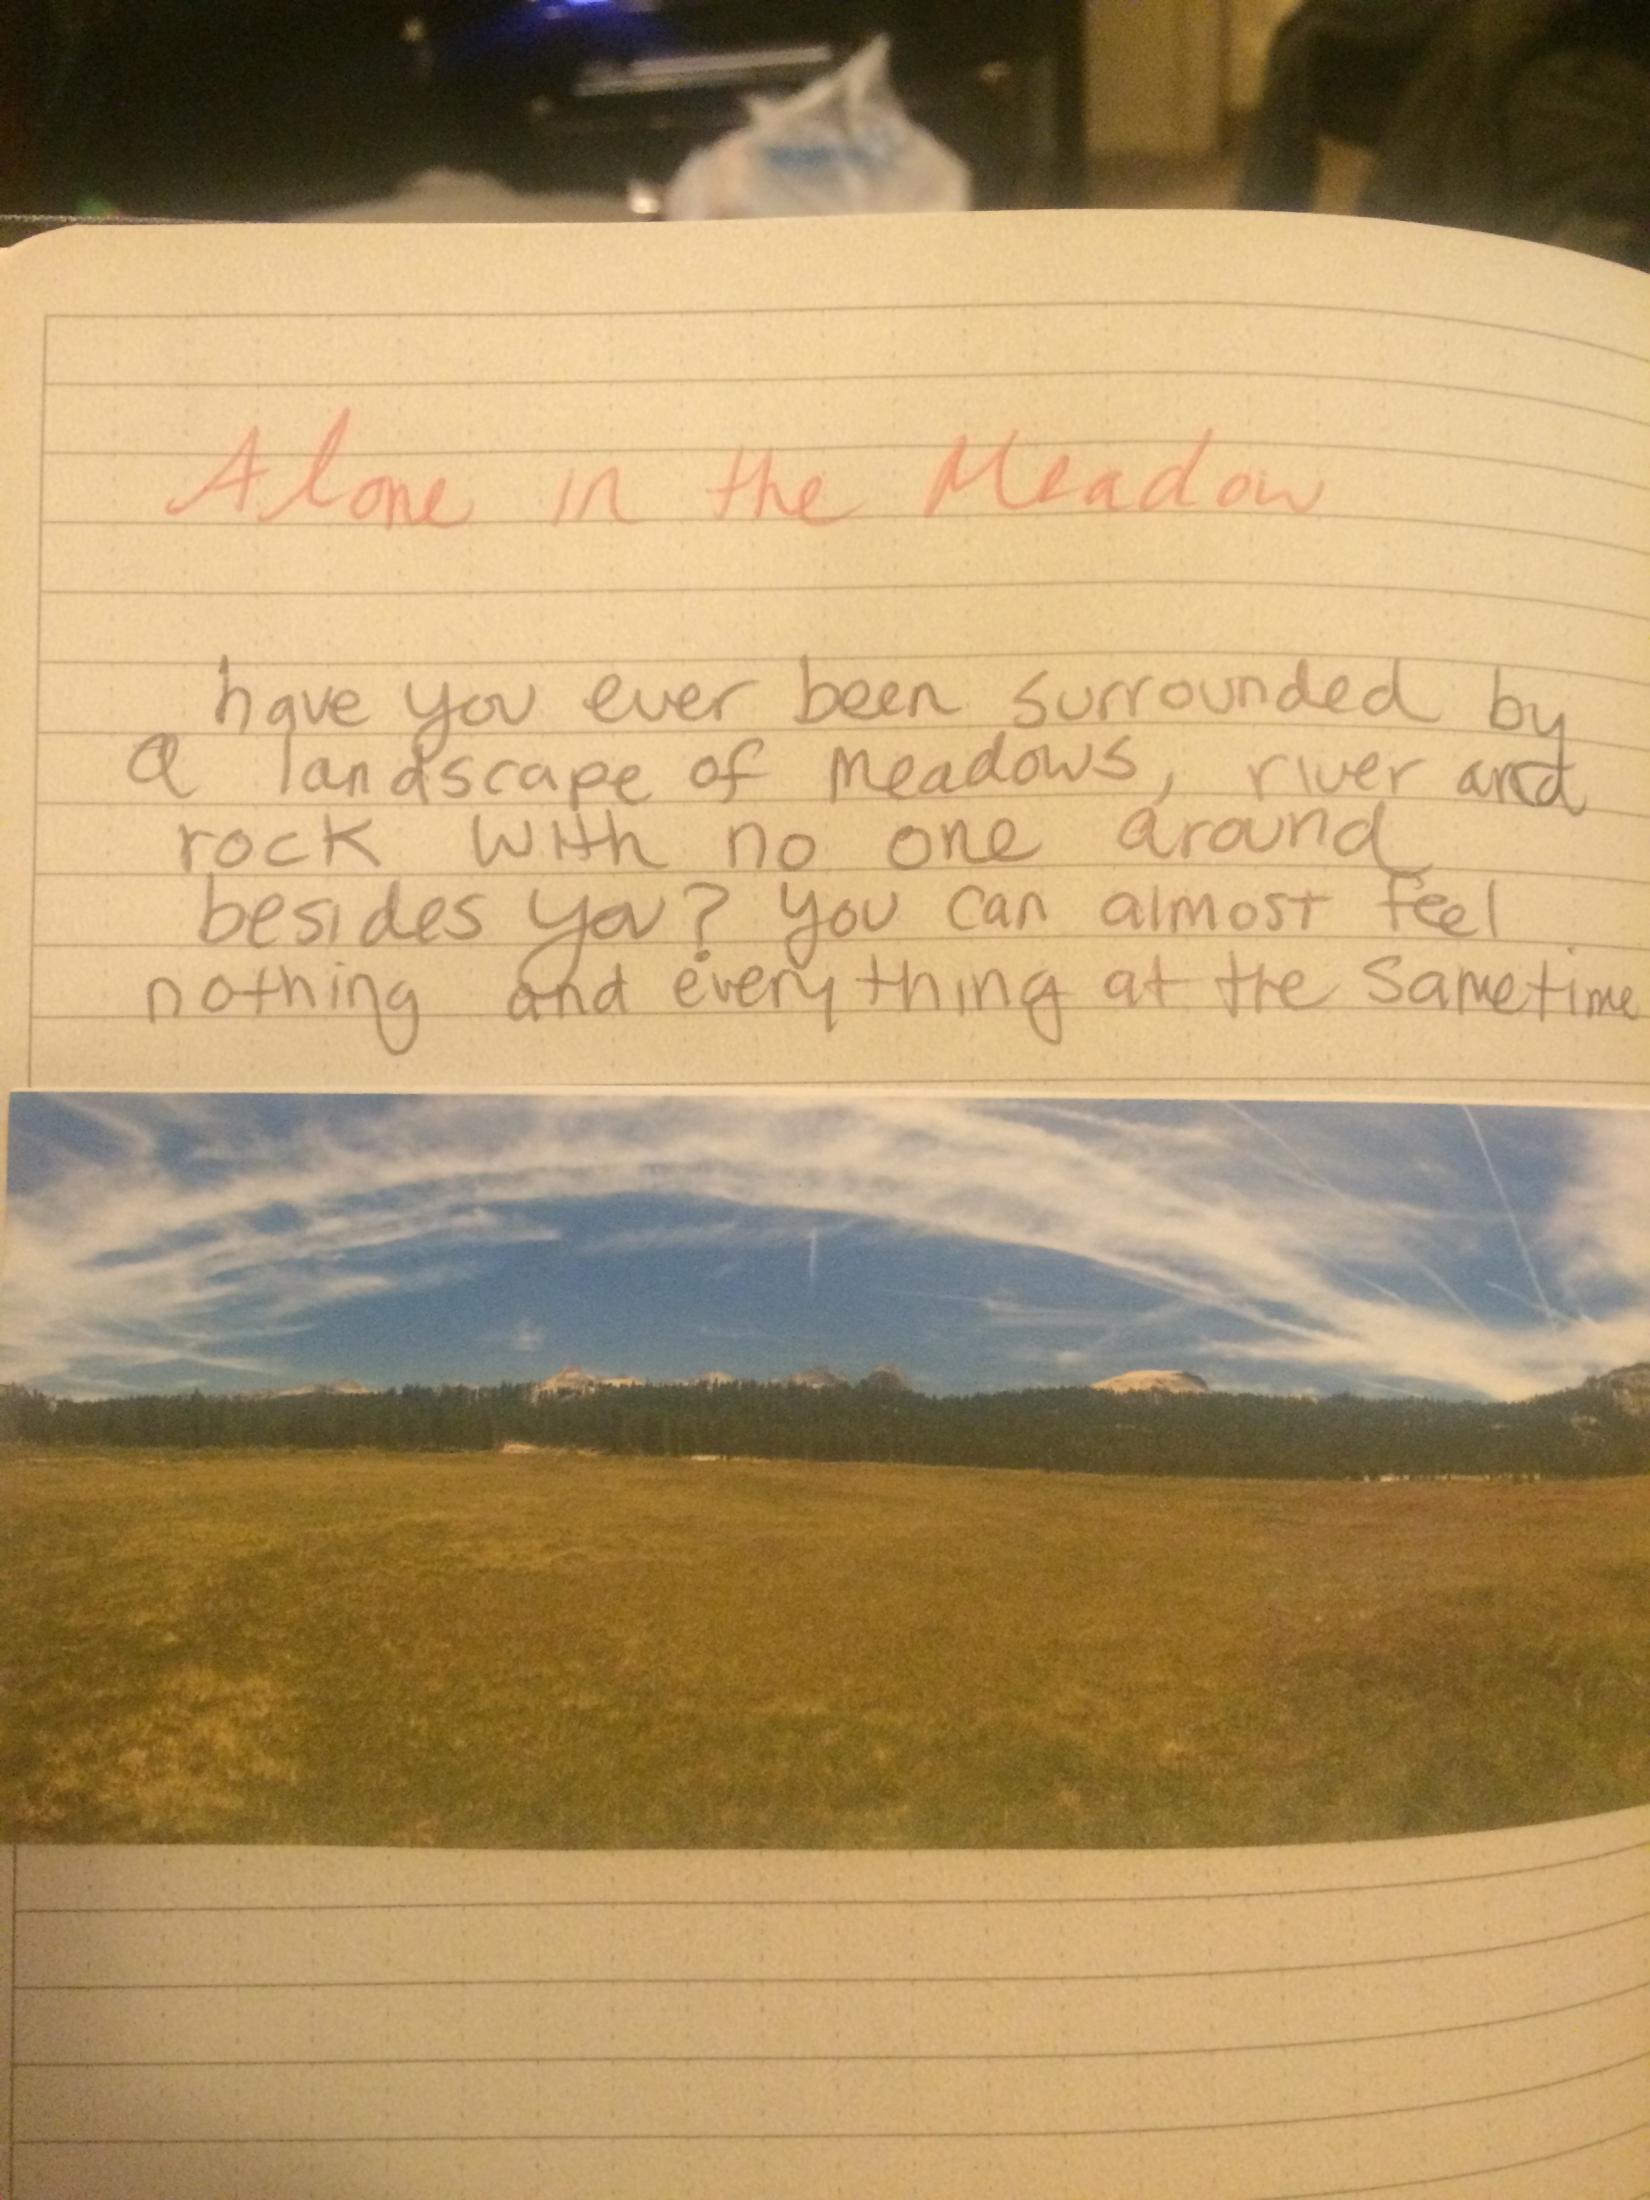 Alone in the Meadow
have you ever been surrounded by
a landscape of meadows, river and
rock with no one around
besides you? you can almost feel
nothing and everything at the sametime